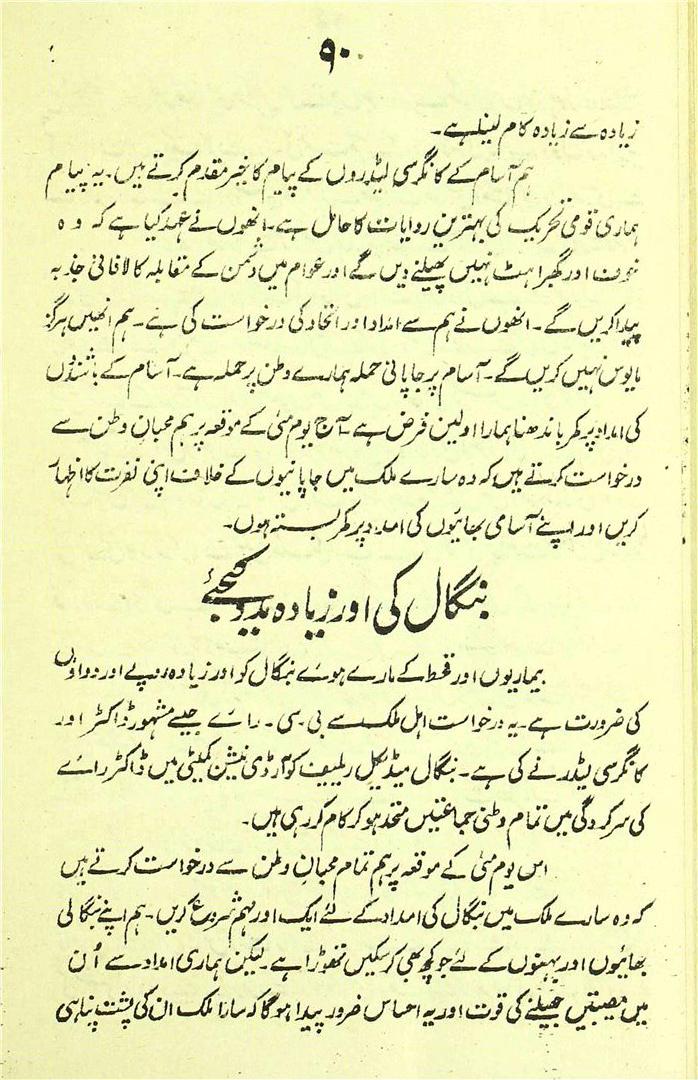 ۹۰
زیادہ سے زیادہ کام لینا ہے۔
ہم آسام کے کانگرسی لیڈروں کے پیام کا خیر مقدم کرتے ہیں۔ یہ پیام
ہماری قومی تحریک کی بہترین روایات کا حامل ہے۔ انھوں نے عہد کیا ہے کہ وہ
خوف اور گھبراہٹ نہیں پھیلنے دیں گے اور عوام میں دشمن کے مقابلہ کا لافانی جذبہ
پیدا کریں گے۔ انھوں نے ہم سے امداد اور اتحاد کی درخواست کی ہے۔ ہم انھیں ہرگز
مایوس نہیں کریں گے۔ آسام پر جاپانی حملہ ہمارے وطن پر حملہ ہے۔ آسام کے باشندوں
کی امداد پر کمر باندھنا ہمارا اولین فرض ہے۔ آج یوم مئی کے موقعہ پر ہم محبان وطن سے
درخواست کرتے ہیں کہ وہ سارے ملک میں جاپانیوں کے خلاف اپنی نفرت کا اظہار
کریں اور اپنے آسامی بھائیوں کی امداد پر کمر بستہ ہوں۔
بنگال کی اور زیادہ مدد کیجئے
بیماریوں اور قحط کے مارے ہوئے بنگال کو اور زیادہ روپے اور دواؤں
کی ضرورت ہے۔ یہ درخواست اہل ملک سے بی۔ سی۔ رائے جیسے مشہور ڈاکٹر اور
کانگرسی لیڈر نے کی ہے۔ بنگال میڈیکل ریلیف کوآرڈی نیشن کمیٹی میں ڈاکٹر رائے
کی سرکردگی میں تمام وطنی جماعتیں متحد ہو کر کام کر رہی ہیں۔
اس یوم مئی کے موقعہ پر ہم تمام محبان وطن سے درخواست کرتے ہیں
کہ وہ سارے ملک میں بنگال کی امداد کے لئے ایک اور مہم شروع کریں۔ ہم اپنے بنگالی
بھائیوں اور بہنوں کے لئے جو کچھ بھی کر سکیں تھوڑا ہے۔ لیکن ہماری امداد سے اُن
میں مصیبتیں جھیلنے کی قوت اور یہ احساس ضرور پیدا ہوگا کہ سارا ملک ان کی پشت پناہی